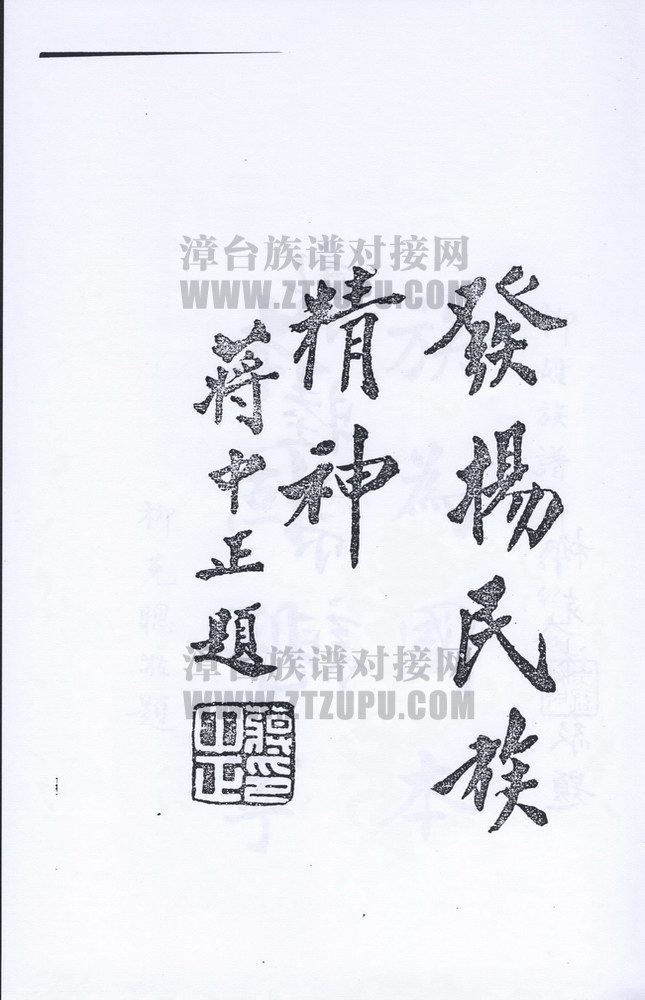 發揚民族
精神
蔣中正題
蔣中正印
漳台族谱对接网
WWW.ZTZUPU.COM
漳台族谱对接网
WWW.ZTZUPU.COM